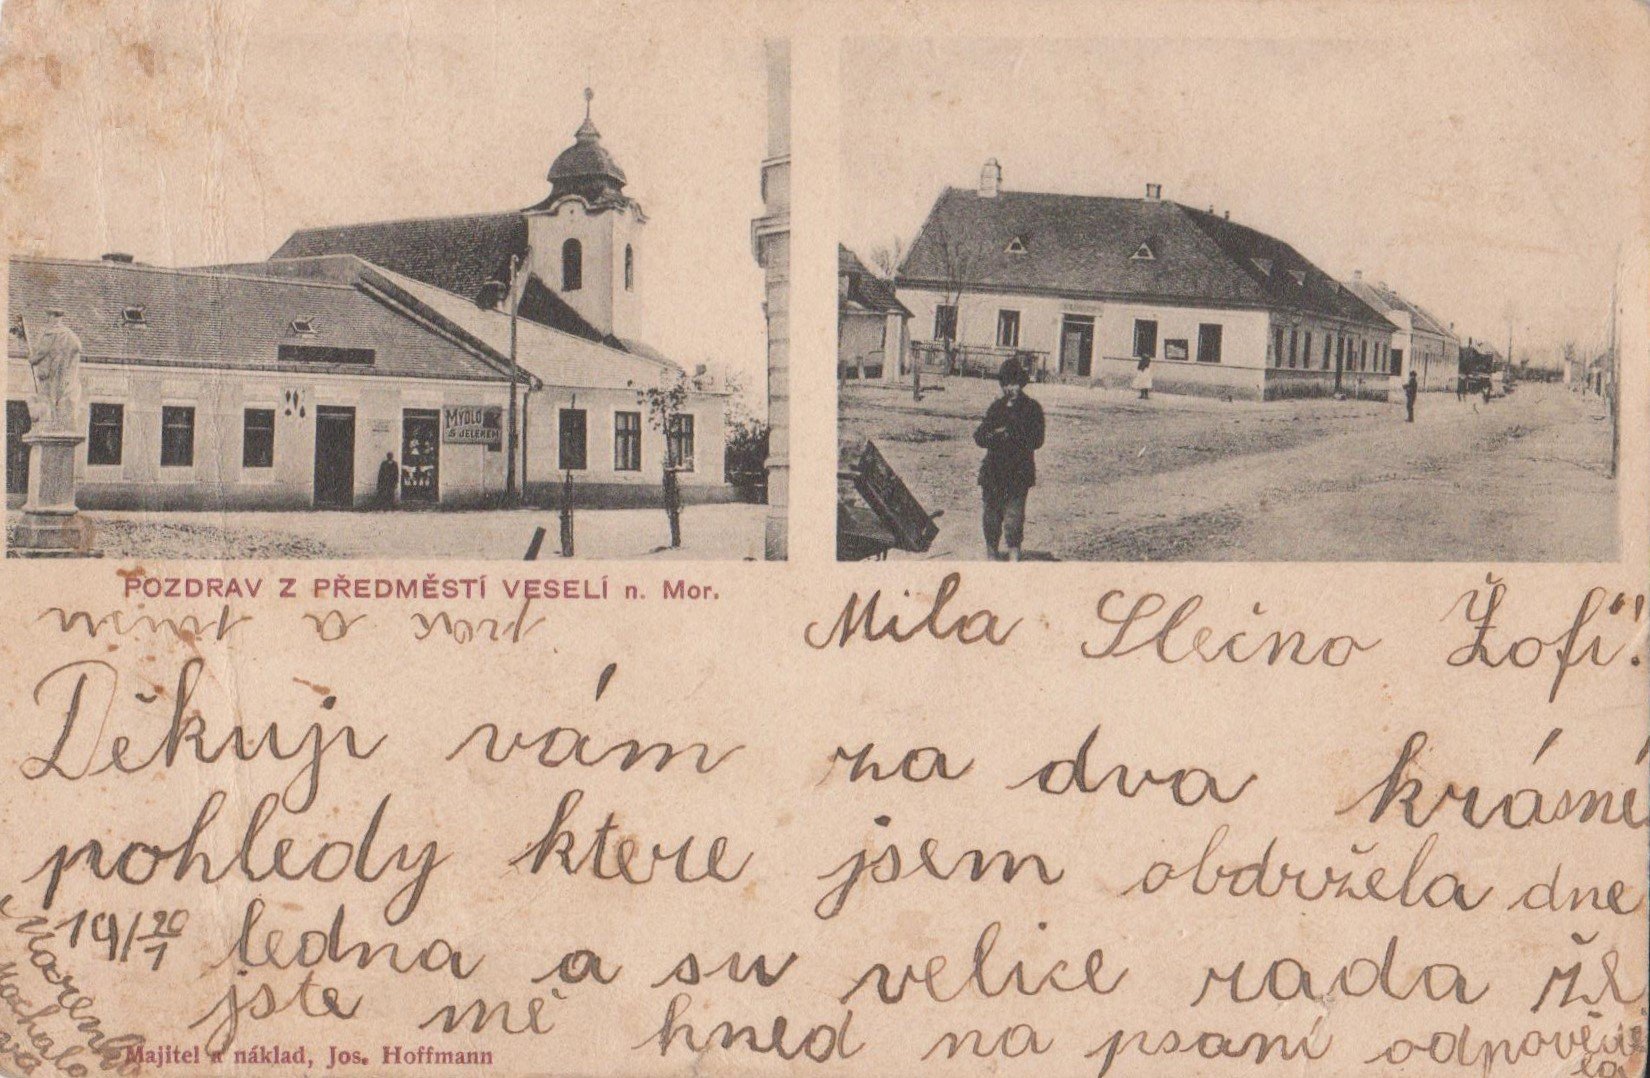 MYDLO
S JELENEM
POZDRAV Z PŘEDMĚSTÍ VESELÍ n. Mor.
Mila Slečno Žofi!
Děkuji vám za dva krásné
pohledy ktere jsem obdržela dne
19/20/1 ledna a su velice rada že
jste mě hned na psaní odpověděla
Mařenka
Machalova
Majitel a náklad, Jos. Hoffmann